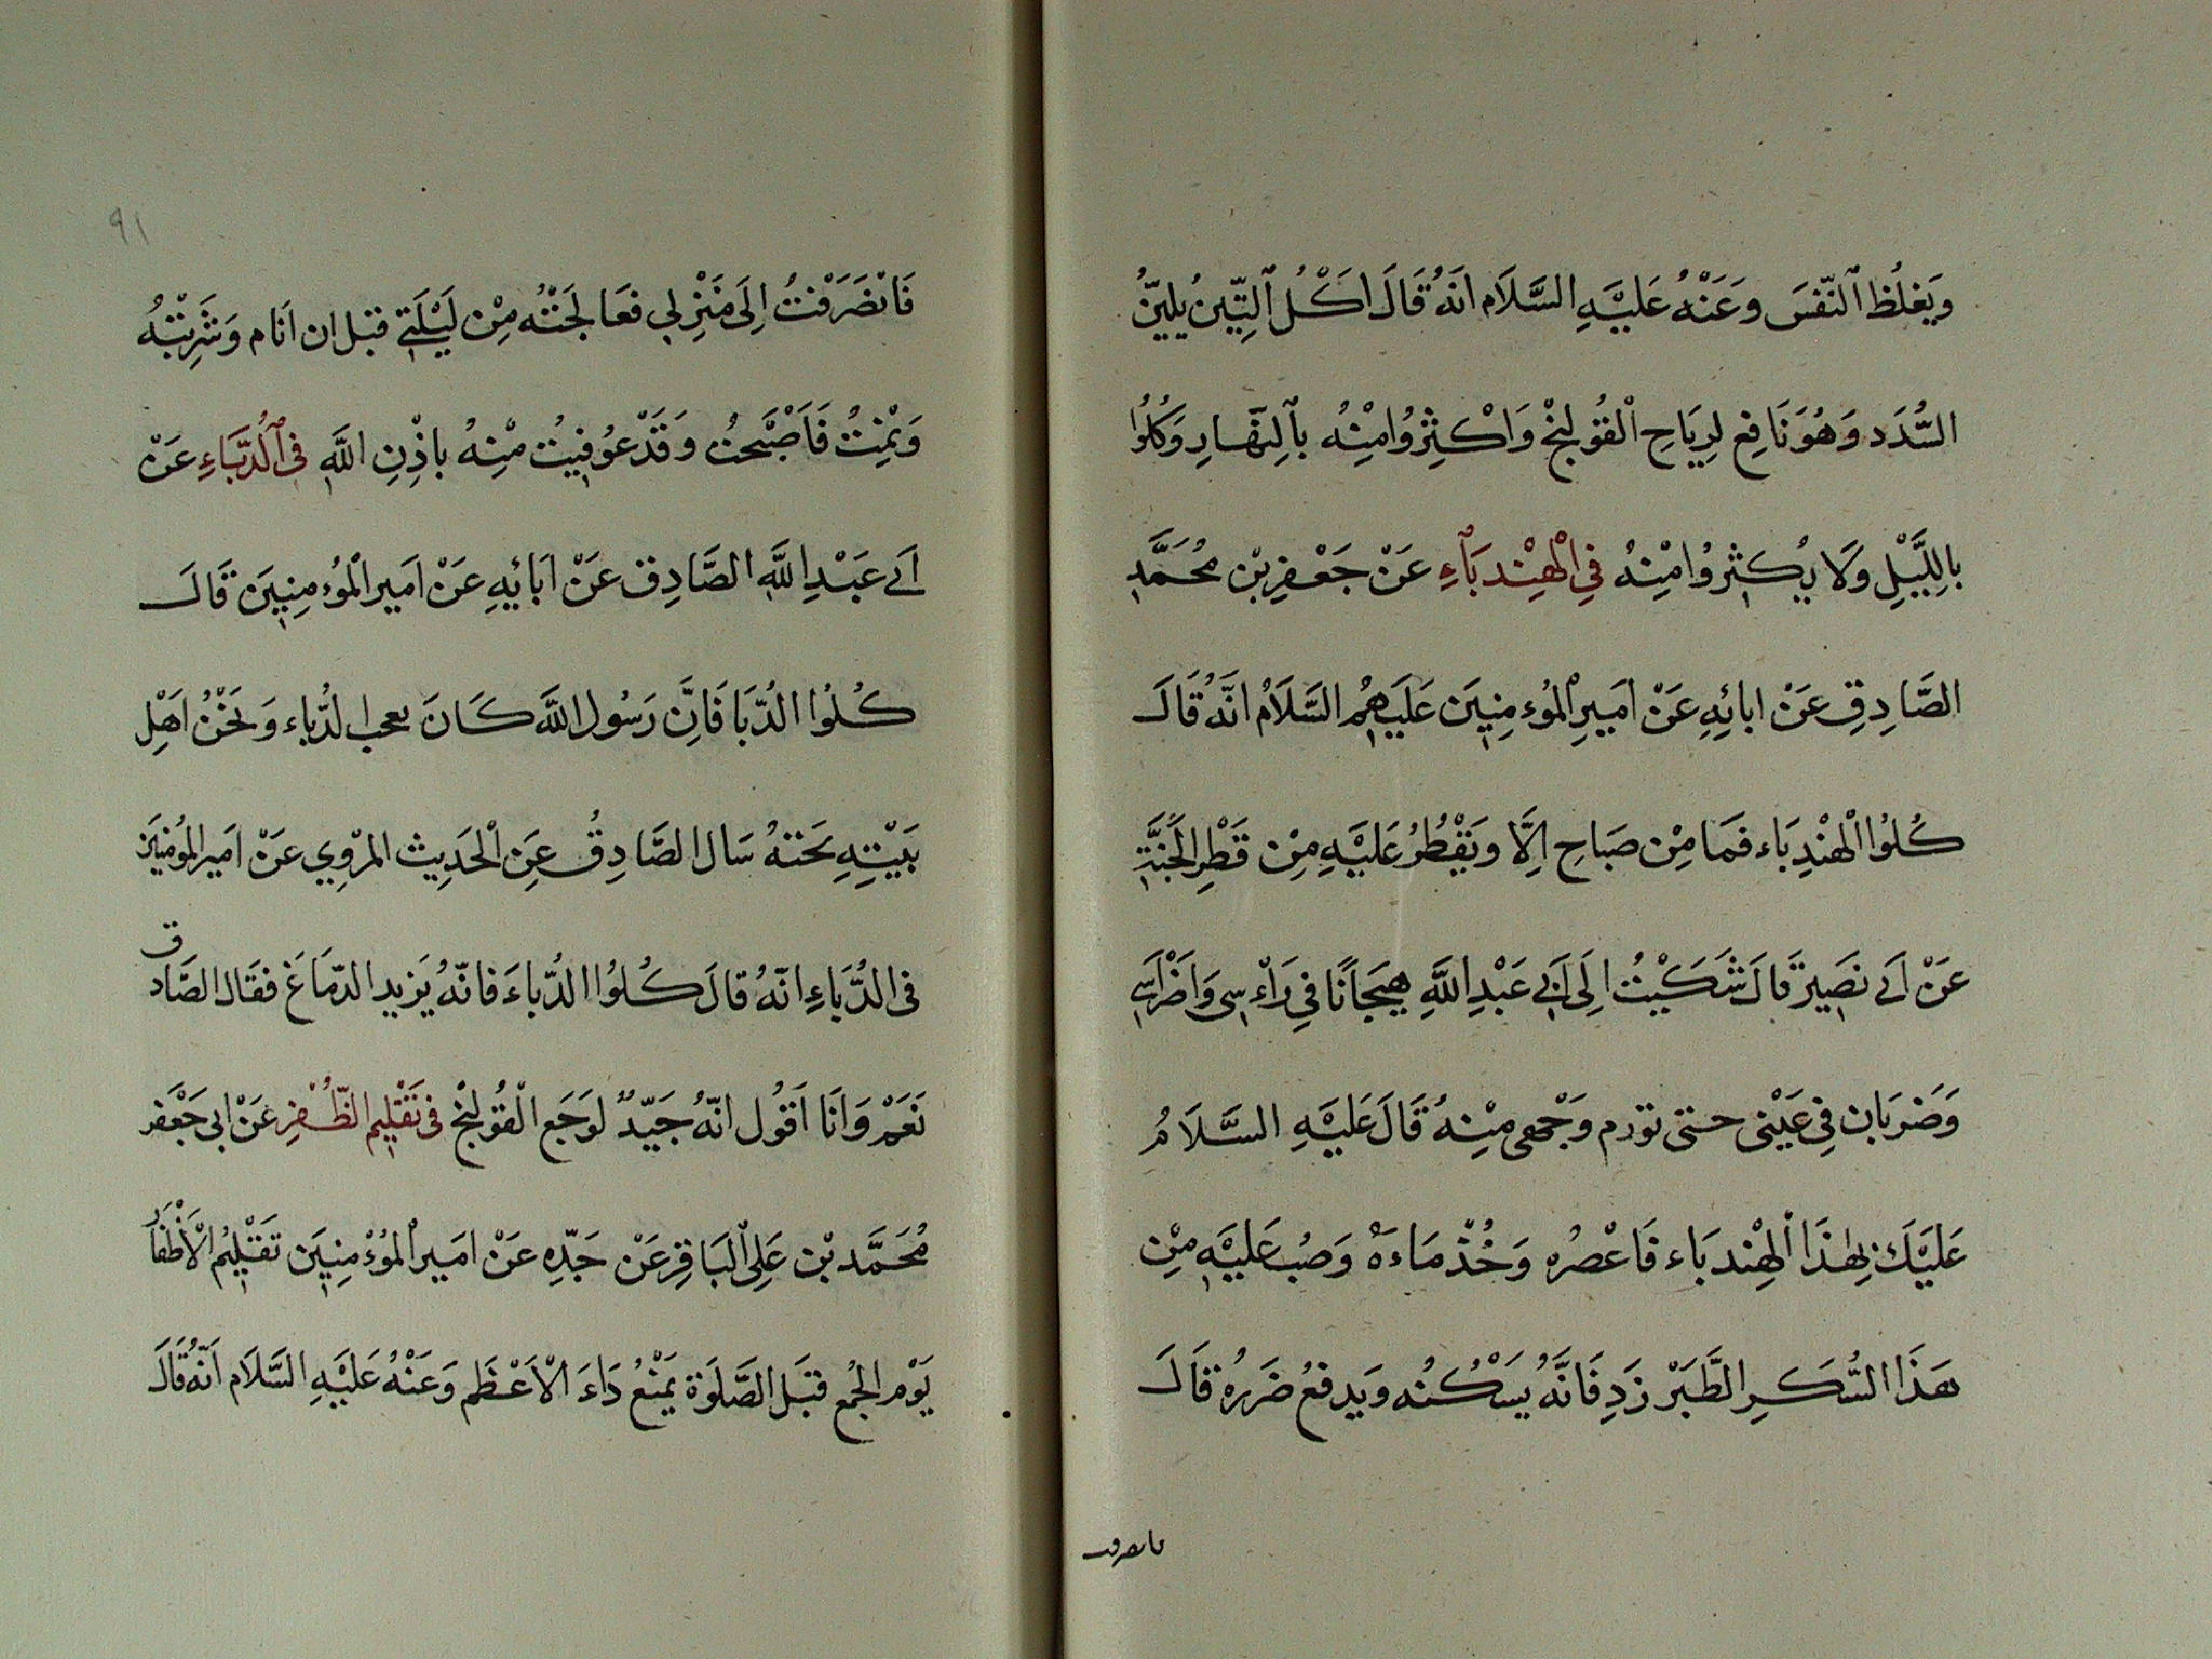 وَيَغلُظ ٱلنّفسَ وَعَنْهُ عَليْهِ السَّلَام انَهُ قَالَ اَكْلُ ٱلتِّينُ يليّنُ
السُّدَد وَهُوَ نَافِع لِرِيَاحِ الْقُولنجْ وَاكْثِرُوا مِنْهُ بٱلنَّهَارِ وَكُلُوا
بِاللَّيْلِ وَلَا يُكثِرُوا مِنْهُ فِي الْهِنْدبَآءِ عَنْ جَعْفرِ بْن مُحَمَّدٍ
الصَّادِقِ عَنْ ابائِهِ عَنْ اَمِيرِ الْمُوءمِنِينَ عَلَيهِمُ السَّلَامُ انَّهُ قَالَ
كُلُوا الْهِنْدِبَاء فَمَا مِنْ صَبَاحِ اِلَّا وَيَقْطُرُ عَليْهِ مِنْ قَطْرِ الْجَنَّةِ
عَنْ اَبي نَصِير قَالَ شَكَيْتُ اِلَى اَبِي عَبْدِ اللَّهِ هِيَجَانًا فِي رَاْءسِى وَاَضْرَاسِي
وَضَربَان فِي عَيْنى حتى تورم وَجْهى مِنهُ قَالَ عَلَيْهِ السَّلَامُ
عَلَيْكَ بِهٰذَا الْهِنْدبَاء فَاعْصُرْه وَخُذْ مَاءَهُ وَصُب عَليْهِ مِنْ
هَذَا السُّكَرِ الطَّبَرْ زَدِ فَانَّهُ يُسَكْنُه وَيدفعُ ضَررُهُ قَالَ
فانصرفت
٩١
فَانْصَرَفْتُ اِلَى مَنْزِلِي فعَالَجَتْهُ مِنْ لَيْلَتِي قبل ان اَنَام وَشَرِبْتهُ
وَنِمْتُ فَاَصْبَحتُ وَقَدْ عُوفِيتُ مْنِهُ باذْنِ اللَّهِ فِى ٱلدُّبَّاءِ عَنْ
اَبى عَبْدِ اللَّهِ الصَّادِق عَنْ اٰبَائِهِ عَنْ اَمَير الْمُوءمِنِينَ قَالَ
كُلُوا الدُّبَا فَانَّ رَسُول اللَّه كَانَ يعجب الدُّباء وَنَحْنُ اَهْلِ
بَيْتِهِ نحِبّهُ سَال الصَّادِقُ عَنِ الْحَدِيث المرْوِي عَنْ اَمير المُومِنيَن
فى الدُّبَاءِ انّهُ قَالَ كُلُوُا الدُّباءَ فانّهُ يَزيد الدّمَاغَ فقَال الصَّادق
نَعَمْ وَاَنَا اَقُول انّهُ جَيّدٌ لوَجَع الْقُولِنجْ فى تَقْلِيمِ الظُّفْرِ عَنْ ابى جَعْفر
مُحَمَّد بْن عَلِى الْبَاقِر عَنْ جَدّهِ عَنْ اَمَير الْمُوءْمِنِينَ تَقْلِيمُ الْاَظْفَار
يَوْم الجُمع قبَل الصَّلوٰة يَمْنَعُ دَاءَ الْاَعْظَم وَعَنْهُ عَليْهِ السَّلَام اَنّهُ قَالَ